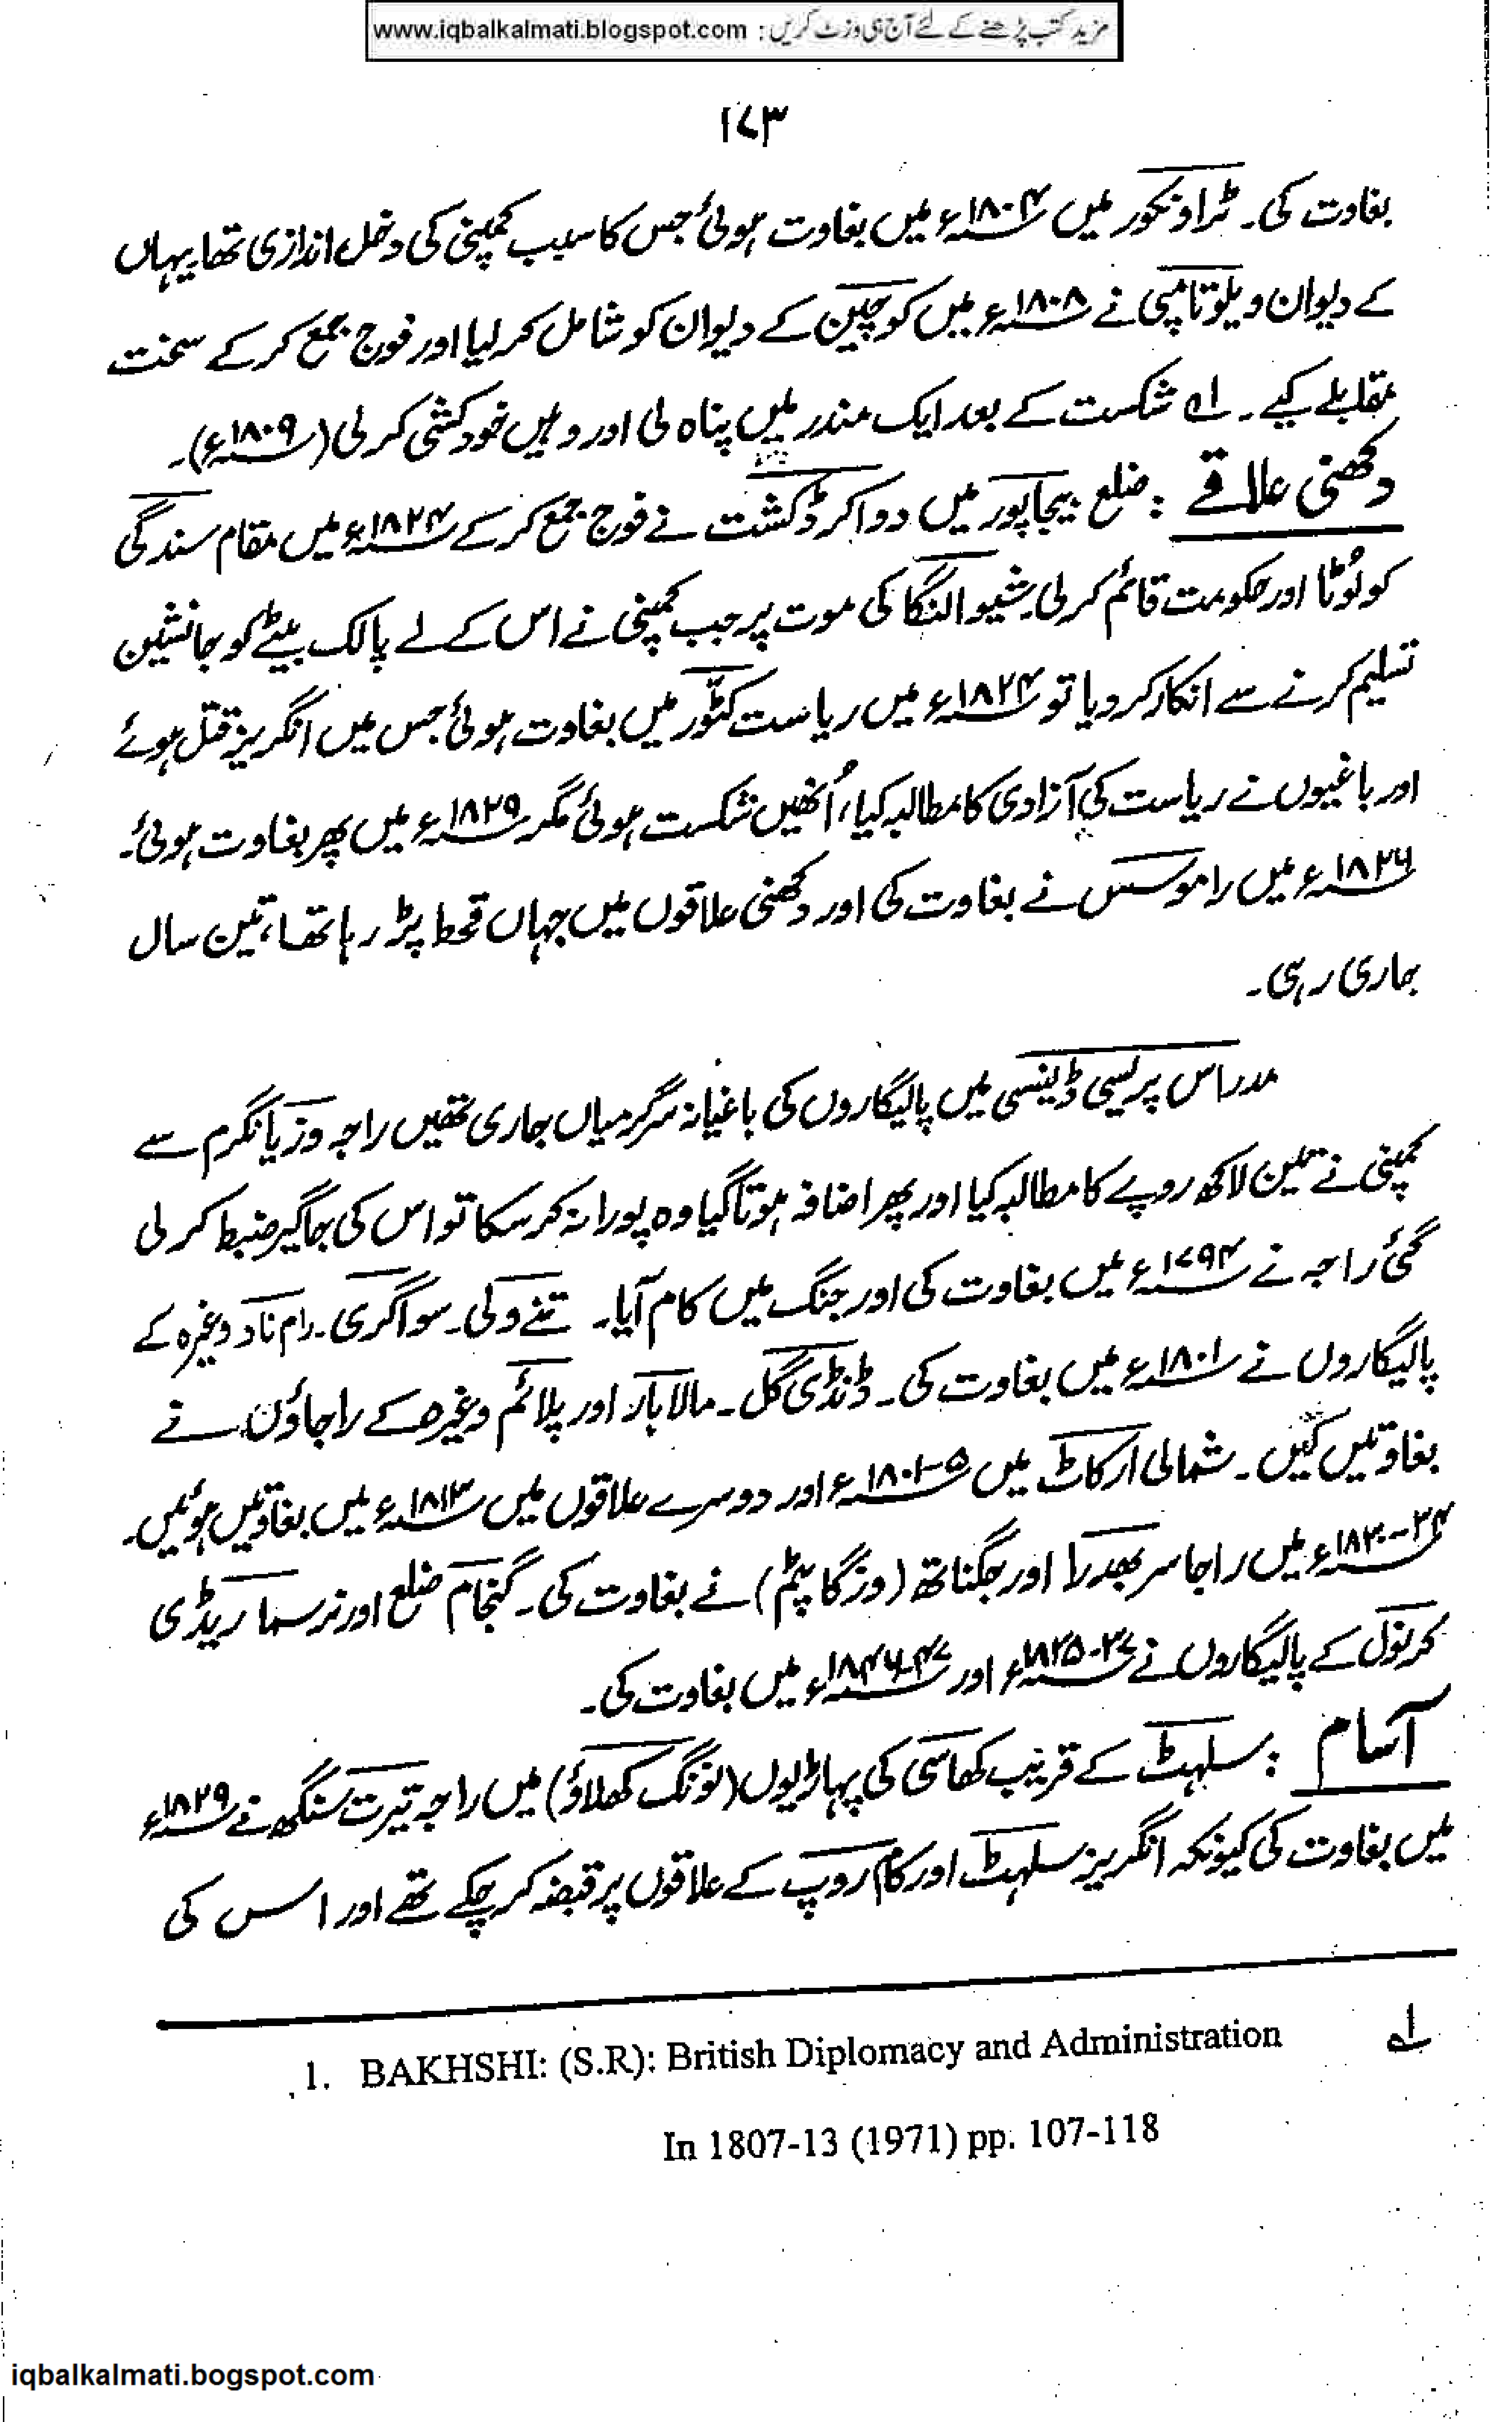 مزید کتب پڑھنے کے لئے آج ہی وزٹ کریں : www.iqbalkalmati.blogspot.com
۱۷۳
بغاوت کی۔ ٹراونکور میں ۱۸۰۴ء میں بغاوت ہوئی جس کا سبب کمپنی کی دخل اندازی تھا یہاں
کے دیوان ویلوتامپی نے ۱۸۰۸ء میں کوچین کے دیوان کو شامل کر لیا اور فوج جمع کر کے سخت
مقابلے کیے۔ ۱ہ شکست کے بعد ایک مندر میں پناہ لی اور وہیں خودکشی کر لی (۱۸۰۹ء)۔
دکھنی علاقے : ضلع بیجاپور میں دواکر ڈکشت نے فوج جمع کر کے ۱۸۲۴ء میں مقام سندگی
کو لُوٹا اور حکومت قائم کر لی۔ شیو النگا کی موت پر جب کمپنی نے اس کے لے پالک بیٹے کو جانشین
تسلیم کرنے سے انکار کر دیا تو ۱۸۲۴ء میں ریاست کٹور میں بغاوت ہوئی جس میں انگریز قتل ہوئے
اور باغیوں نے ریاست کی آزادی کا مطالبہ کیا، اُنھیں شکست ہوئی مگر ۱۸۲۹ء میں پھر بغاوت ہوئی۔
۱۸۲۶ء میں راموسس نے بغاوت کی اور دکھنی علاقوں میں جہاں قحط پڑ رہا تھا، تین سال
جاری رہی۔
مدراس پریسی ڈینسی میں پالیگاروں کی باغیانہ سرگرمیاں جاری تھیں راجہ وزیانگرم سے
کمپنی نے تین لاکھ روپے کا مطالبہ کیا اور پھر اضافہ ہوتا گیا وہ پورا نہ کر سکا تو اس کی جاگیر ضبط کر لی
گئی راجہ نے ۱۷۹۴ء میں بغاوت کی اور جنگ میں کام آیا۔ تنے ولی۔ سواگری۔ رام ناد وغیرہ کے
پالیگاروں نے ۱۸۰۱ء میں بغاوت کی۔ ڈنڈی گل۔ مالابار اور پلائم وغیرہ کے راجاؤں نے
بغاوتیں کیں۔ شمالی ارکاٹ میں ۵-۱۸۰۱ء اور دوسرے علاقوں میں ۱۸۱۳ء میں بغاوتیں ہوئیں۔
۳۴-۱۸۳۰ء میں راجا سربھدرا اور جگناتھ (وزگاپٹم) نے بغاوت کی۔ گنجام ضلع اور نرسما ریڈی
کرنول کے پالیگاروں نے ۳۷-۱۸۳۵ء اور ۴۷-۱۸۴۶ء میں بغاوت کی۔
آسام : سلہٹ کے قریب کھاسی کی پہاڑیوں (نونگ کھلاؤ) میں راجہ تیرت سنگھ نے ۱۸۲۹ء
میں بغاوت کی کیونکہ انگریز سلہٹ اور کام روپ کے علاقوں پر قبضہ کر چکے تھے اور اس کی
۱ے
1. BAKHSHI: (S.R): British Diplomacy and Administration
In 1807-13 (1971) pp. 107-118
iqbalkalmati.bogspot.com